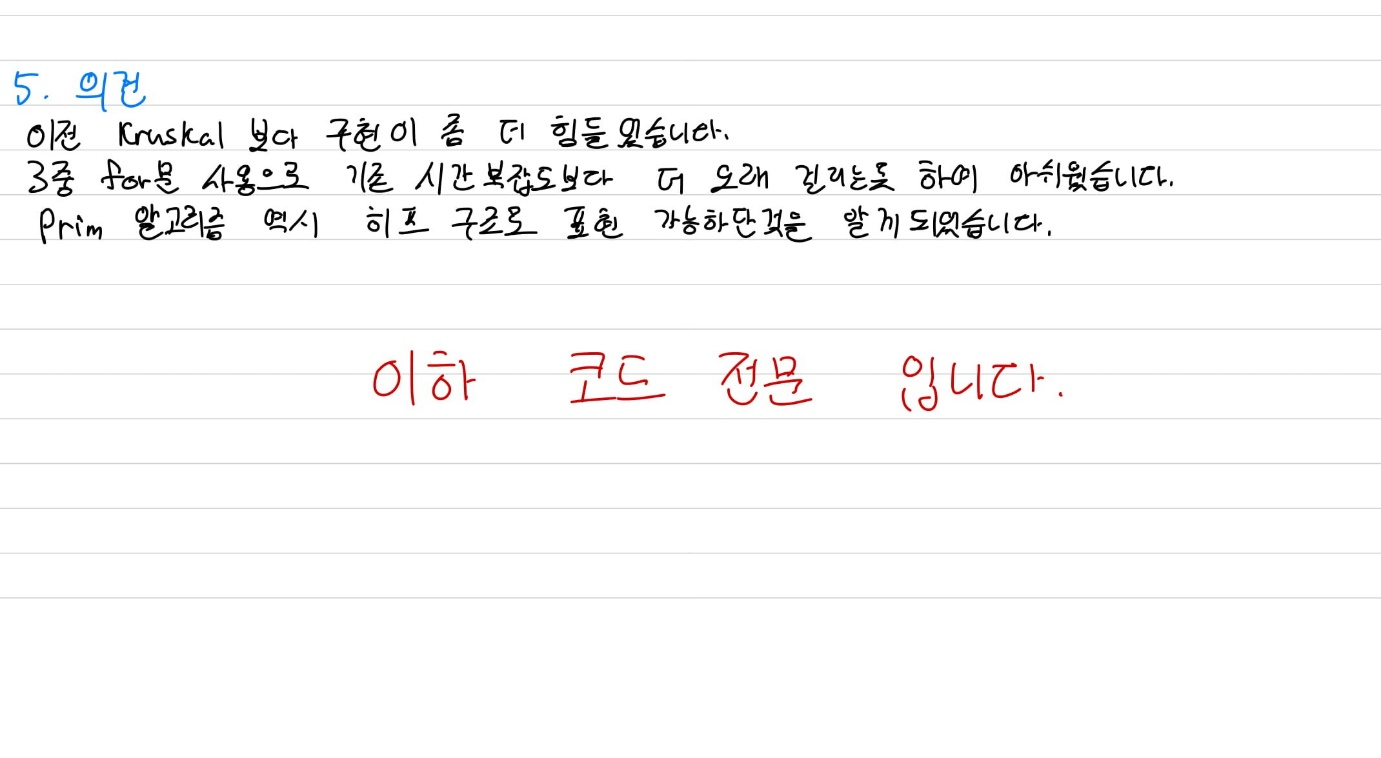 5. 의견
이전 Kruskal 보다 구현이 좀 더 힘들었습니다.
3중 for문 사용으로 기존 시간복잡도보다 더 오래 걸리는듯 하여 아쉬웠습니다.
Prim 알고리즘 역시 히프 구조로 표현 가능하단것을 알게되었습니다.
이하 코드 전문 입니다.